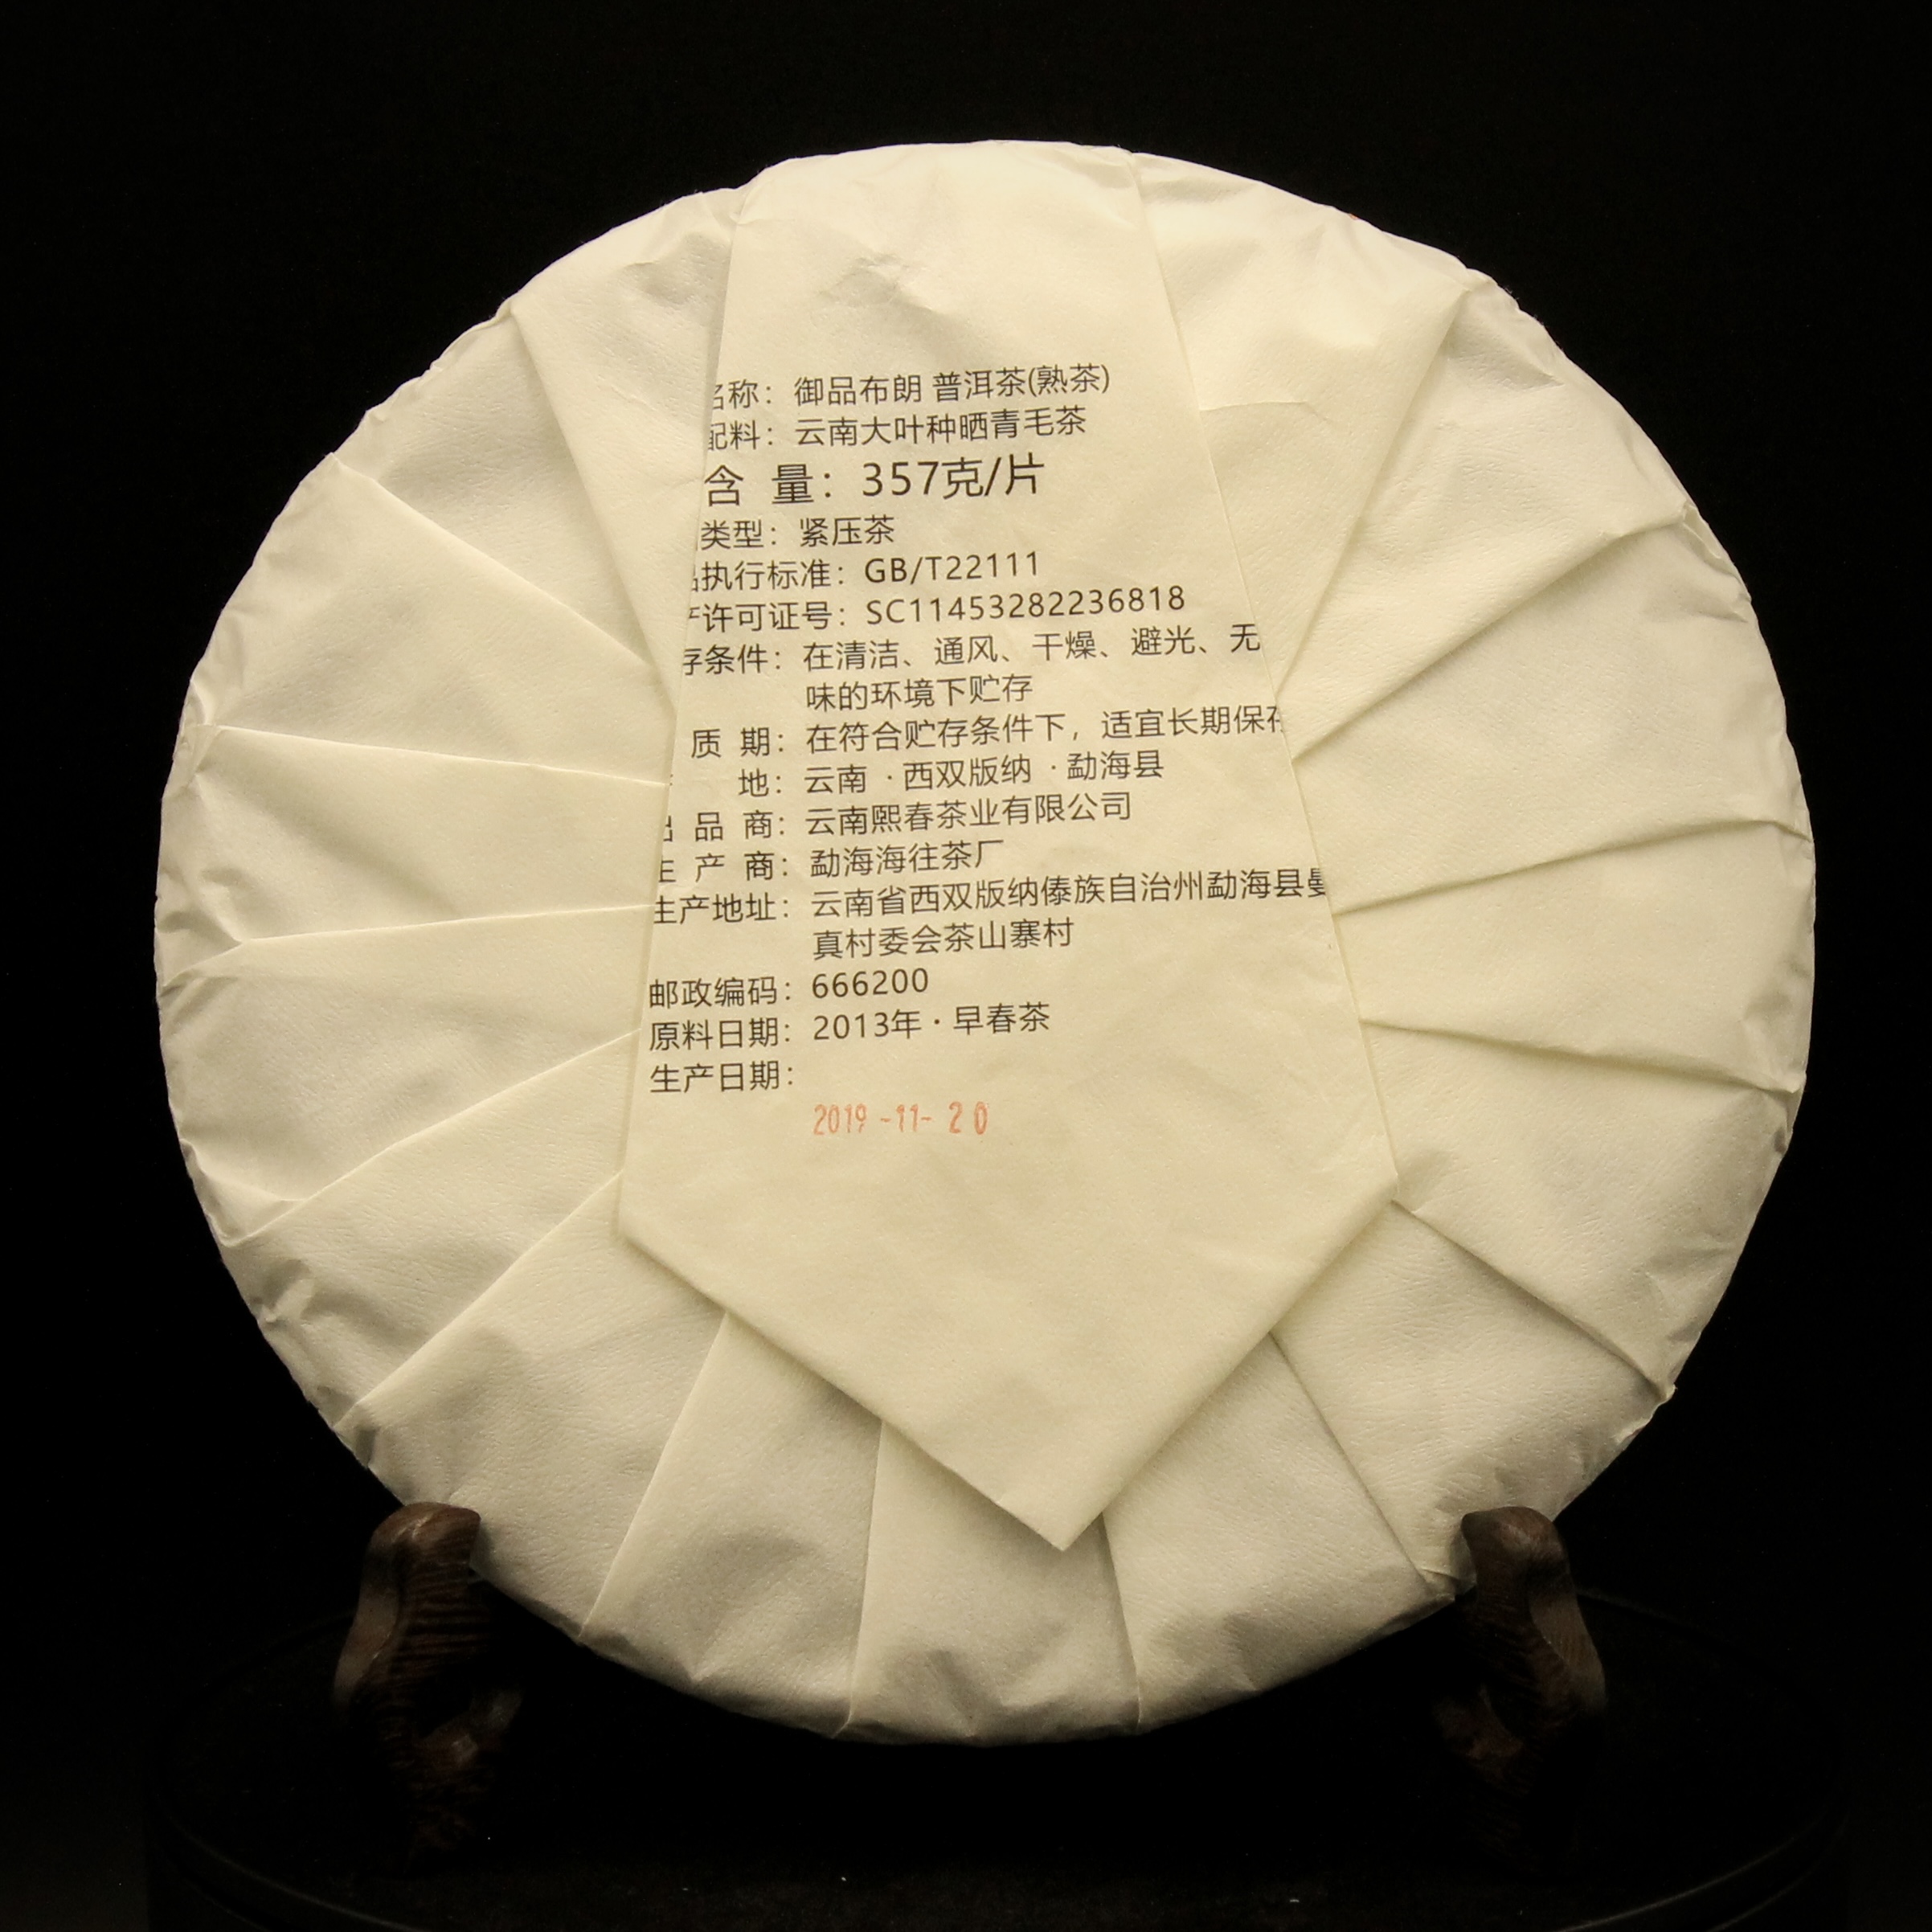 名称：御品布朗 普洱茶(熟茶)
配料：云南大叶种晒青毛茶
含 量：357克/片
类型：紧压茶
品执行标准：GB/T22111
产许可证号：SC11453282236818
存条件：在清洁、通风、干燥、避光、无
味的环境下贮存
质 期：在符合贮存条件下，适宜长期保存
地：云南 · 西双版纳 · 勐海县
出 品 商：云南熙春茶业有限公司
生 产 商：勐海海往茶厂
生产地址：云南省西双版纳傣族自治州勐海县曼
真村委会茶山寨村
邮政编码：666200
原料日期：2013年 · 早春茶
生产日期：
2019-11-20